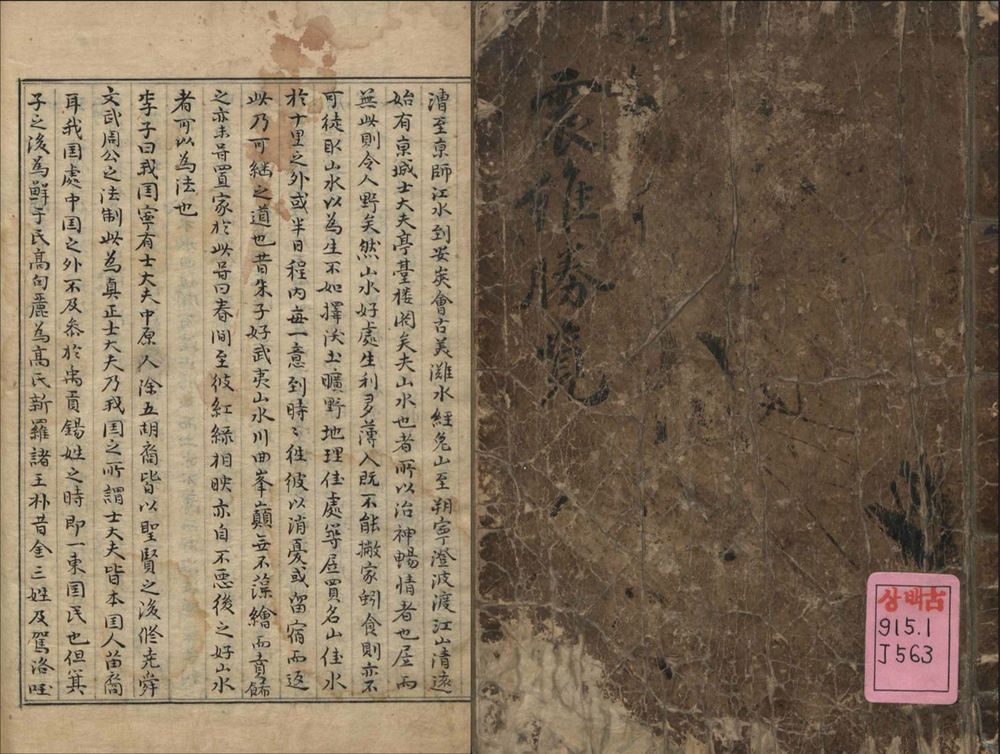 震維勝覽
상백古
915.1
J563
漕至京師江水到安炭會古美灘水經兔山至朔寧澄波渡江山清遠
始有京城士大夫亭臺樓閣矣夫山水也者所以治神暢情者也居而
無此則令人野矣然山水好處生利多薄人既不能撇家蚓食則亦不
可徒取山水以為生不如擇沃土曠野地理佳處築居買名山佳水
於十里之外或半日程內每一意到時〻徃彼以消憂或留宿而返
此乃可継之道也昔朱子好武夷山水川曲峯巔無不藻繪而賁餙
之亦未嘗置家於此嘗曰春間至彼紅綠相映亦自不惡後之好山水
者可以為法也
李子曰我国寧有士大夫中原人除五胡裔皆以聖賢之後修尭舜
文武周公之法制此為真正士大夫乃我国之所謂士大夫皆本国人苗裔
耳我国處中国之外不及叅於禹貢錫姓之時即一東国民也但箕
子之後為鮮于氏高句麗為高氏新羅諸王朴昔金三姓及駕洛